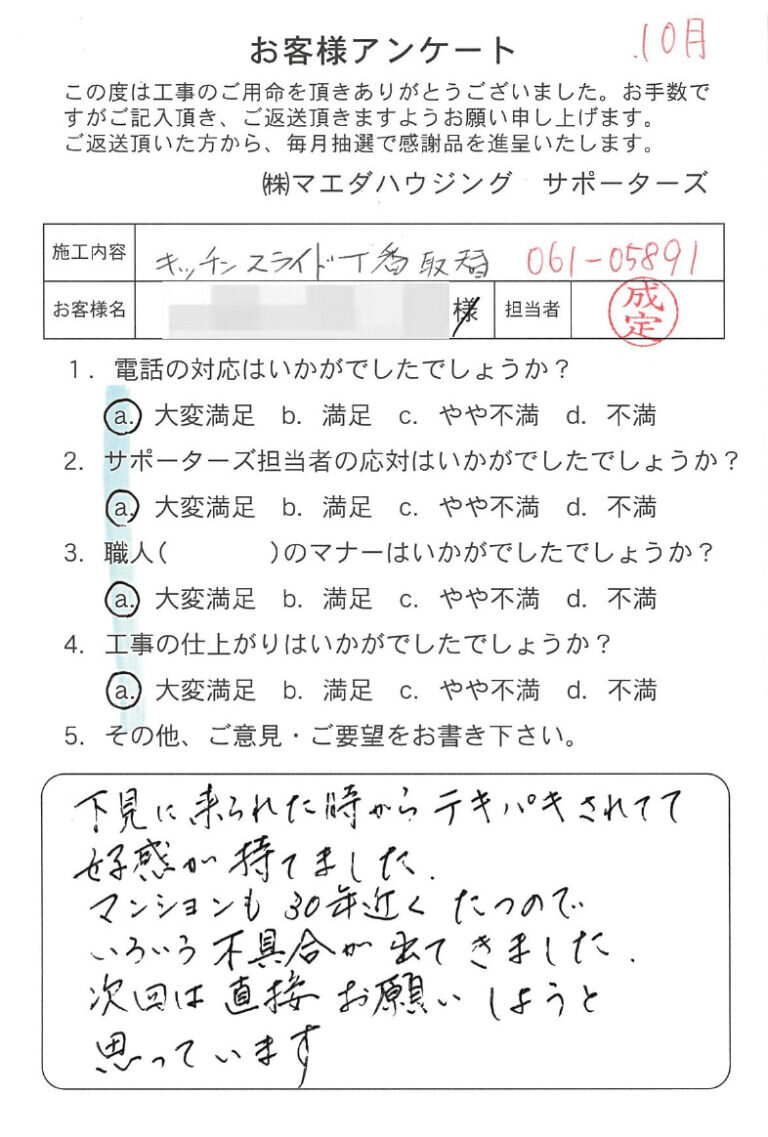 10月
お客様アンケート
この度は工事のご用命を頂きありがとうございました。お手数で
すがご記入頂き、ご返送頂きますようお願い申し上げます。
ご返送頂いた方から、毎月抽選で感謝品を進呈いたします。
㈱マエダハウジング サポーターズ
施工内容 キッチンスライド丁番取替 061-05891
お客様名 様 担当者 成定
1. 電話の対応はいかがでしたでしょうか?
a. 大変満足 b. 満足 c. やや不満 d. 不満
2. サポーターズ担当者の応対はいかがでしたでしょうか?
a. 大変満足 b. 満足 c. やや不満 d. 不満
3. 職人( )のマナーはいかがでしたでしょうか?
a. 大変満足 b. 満足 c. やや不満 d. 不満
4. 工事の仕上がりはいかがでしたでしょうか?
a. 大変満足 b. 満足 c. やや不満 d. 不満
5. その他、ご意見・ご要望をお書き下さい。
下見に来られた時からテキパキされてて
好感が持てました.
マンションも30年近くたつので
いろいろ不具合が出てきました.
次回は直接お願いしようと
思っています